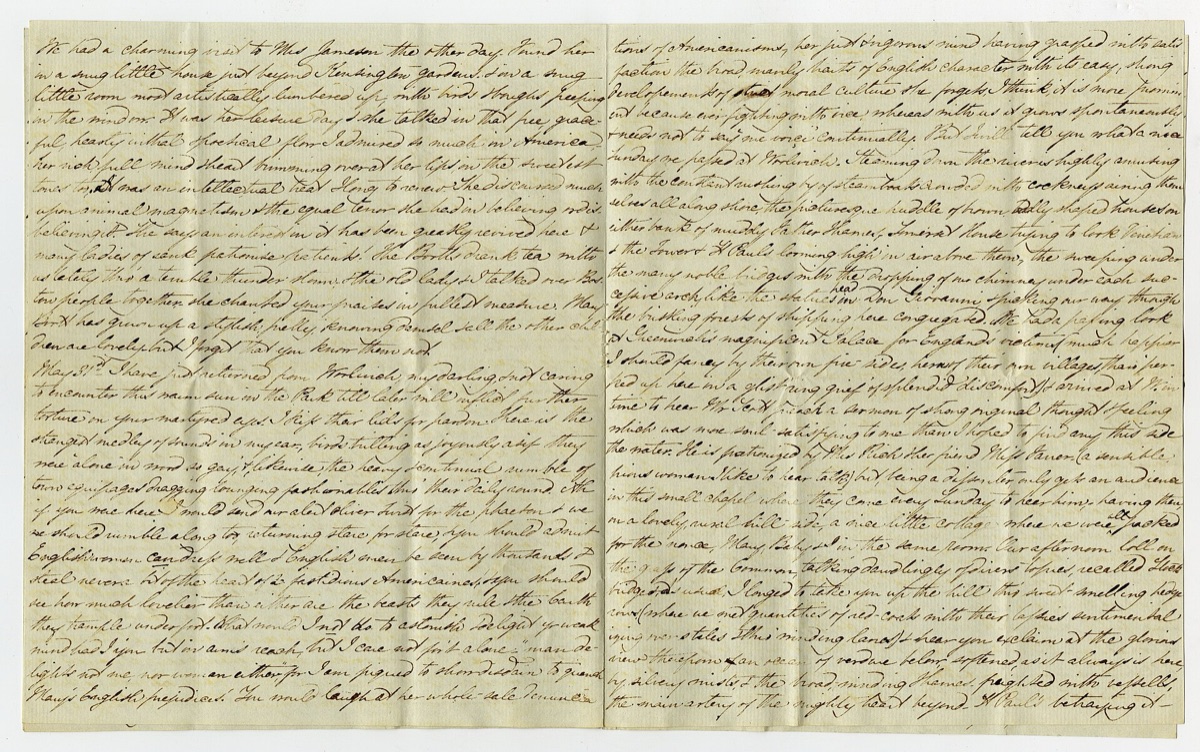 We had a charming visit to Mrs Jameson the other day. Find her
in a snug little house just beyond Kensington gardens, & in a snug
little room most artistically lumbered up, with birds & boughs peeping
in the window. It was her leisure day & she talked in that free, grace-
ful, hearty, with al poetical flow I admired so much in America.
her rich, full mind & heart brimming over at her lips in the sweetest
tones too. It was an intellectual treat I long to renew. She discoursed much
upon animal magnetism & the equal tenor she had in believing or dis-
believing it. She says an interest in it has been greatly revived here &
many ladies of rank patronise patients. The Botts drank tea with
us lately thro' a terrible thunder storm & the old lady & I talked over Bos-
ton people together. she chanted your praises in fullest measure. Mary
Bott has grown up a stylish, pretty, knowing damsel & all the other chil-
dren are lovely but I forget that you know them not.
May 31st. I have just returned from Woolwich, my darling, & not caring
to encounter this warm sun in the Park till later will inflict further
torture on your martyred eyes. I kiss their lids for pardon. Here is the
strangest medley of sounds in my ear, birds trilling as joyously as if they
were alone in wood so gay, & likewise the heavy, continual rumble of
town equipages dragging lounging fashionables thro' their daily round. Ah
if you were here I would send our aled Oliver Twist for the phaeton & we
we should rumble along too, returning stare for stare, & you should admit
Englishwomen can dress well & English men be seen by thousands &
steal never a bit of the heart of a fastidious Americaine, & you should
see how much lovelier than either are the beasts they rule & the earth
they trample under foot. What would I not do to astonish & delight yr weak
mind had I you but in arms reach, but I care not for it alone – man de-
lights not me, nor woman either, for I am piqued to show disdain to quench
Mary's English prejudices. You would laugh at her whole-sale denuncia-
tions of Americanisms, her just & vigorous mind having grasped with satis-
faction the broad, manly traits of English character with its easy, strong
developements of moral culture she forgets, I think, it is more promin-
ent because ever fighting with vice, whereas with us it grows spontaneously
& needs not to say me voici continually. But I will tell you what a nice
Sunday we passed at Woolwich. Steaming down the river is highly amusing
with the constant rushing by of steam boats crowded with cockneys airing them-
selves all along shore, the picturesque huddle of brown oddly shaped houses on
either bank of muddy Father Thames, Somerset House trying to look Venetian
& the Tower & St Pauls looming high in air above them, the sweeping under
the many noble bridges with the dropping of our chimney under each suc-
cessive arch like the statues head in Don Giovanni, speaking our way through
the bustling forests of shipping here congregated. We had a passing look
at Greenwich's magnificent Palace for England's victims, much happier
I should fancy by their own fire sides, heroes of their own villages than per-
ked up here in a glistering grief of splendid discomfort, & arrived at W. in
time to hear Mr Scott preach a sermon of strong original thought & feeling
which was more soul-satisfying to me than I hoped to find any this side
the water. He is patronized by Miss Rich & her friend Miss Farrer, (a sensible,
shrewd woman I like to hear talk) but being a dissenter only gets an audience
in this small chapel where they come every Sunday to hear him, having there,
on a lovely rural hill side, a nice little cottage where we were all packed
for the nonce, Mary, Baby & I in the same room. Our afternoon loll on
the grass of the Common, talking dawdlingly of divers topics, recalled Stock-
bridge & as usual, I longed to take you up the hill this sweet smelling hedge
row (where we met quantities of red-coats with their lassies sentimental-
izing over stiles & thro' winding lanes) & hear you exclaim at the glorious
view therefrom – an ocean of verdure below, softened, as it always is here,
by silvery mists & the broad, winding Thames, freighted with vessells,
the main artery of the mighty heart beyond, St Paul's betraying it –